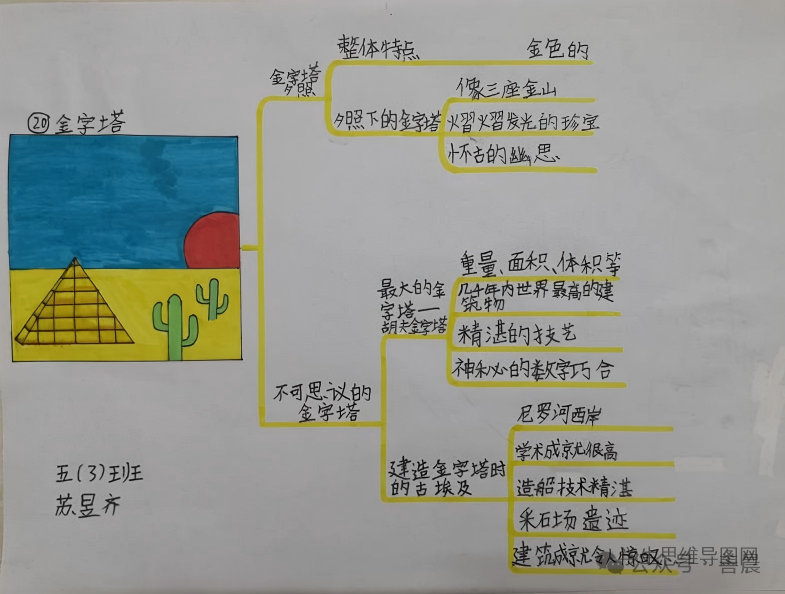 ⑳金字塔
金字塔
夕照
整体特点
金色的
夕照下的金字塔
像三座金山
熠熠发光的珍宝
怀古的幽思
不可思议的
金字塔
最大的金
字塔——
胡夫金字塔
重量、面积、体积等
几千年内世界最高的建
筑物
精湛的技艺
神秘的数字巧合
建造金字塔时
的古埃及
尼罗河西岸
学术成就很高
造船技术精湛
采石场遗迹
建筑成就令人惊叹
五(3)班
苏昱齐
公众号·善晨
思维导图网